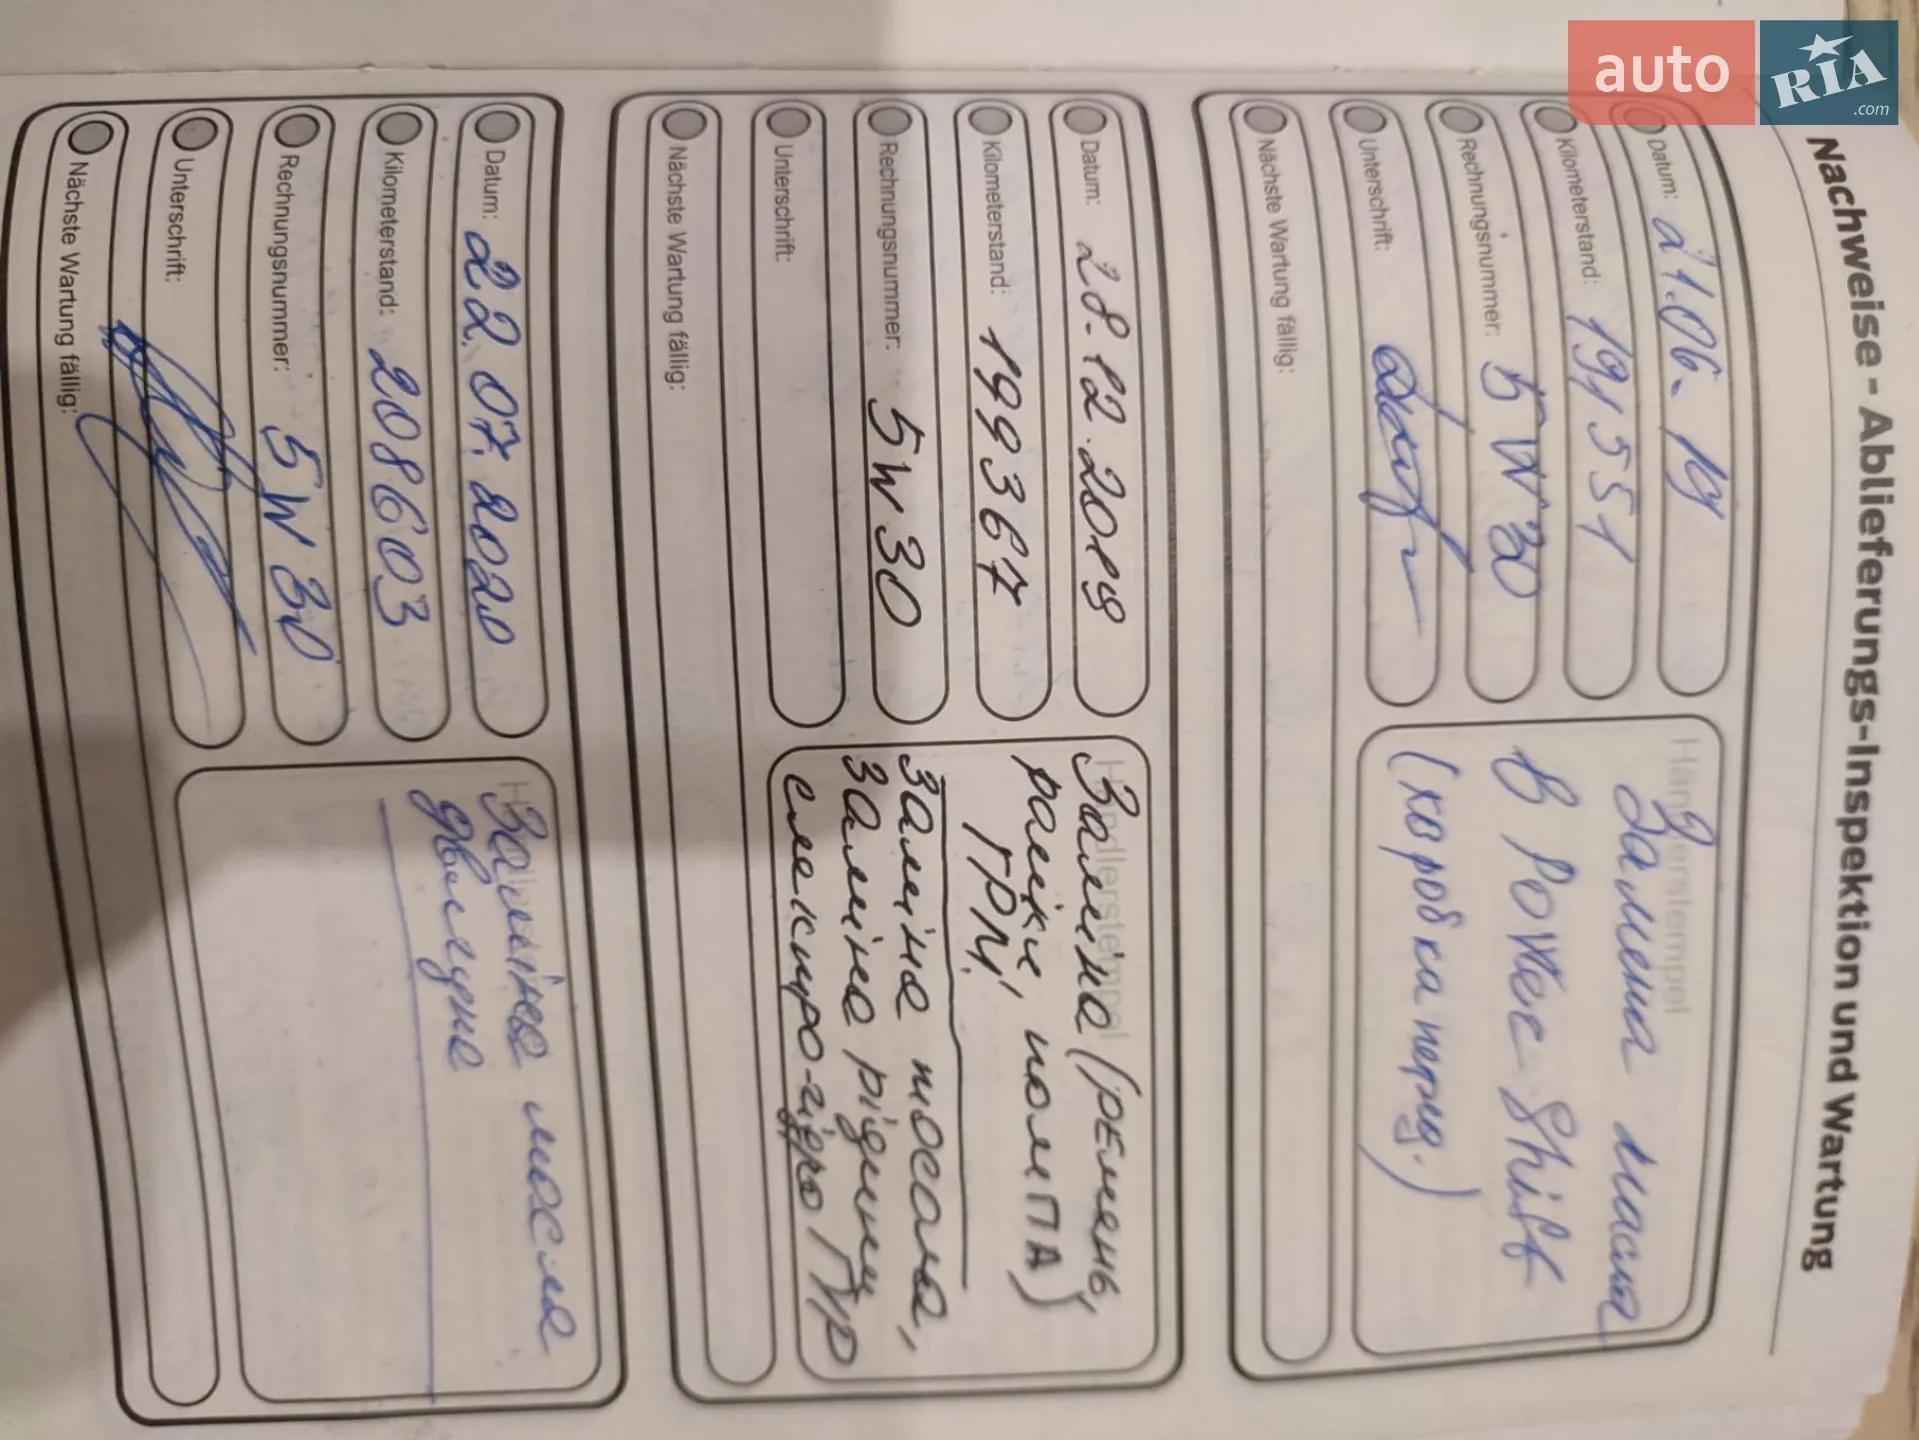 auto RIA .com
Nachweise - Ablieferungs-Inspektion und Wartung
Datum: 21.06.19
Kilometerstand: 191551
Rechnungsnummer: 5W30
Unterschrift:
Nächste Wartung fällig:
Händlerstempel
Замена масла
в Power Shift
(коробка перед.)
Datum: 28.12.2019
Kilometerstand: 199367
Rechnungsnummer: 5W30
Unterschrift:
Nächste Wartung fällig:
Händlerstempel
Заміна (ремень,
ролики, помпа)
ГРМ!
Заміна тосола,
Заміна рідини
електро-гідро ГУР
Datum: 22.07.2020
Kilometerstand: 208603
Rechnungsnummer: 5W30
Unterschrift:
Nächste Wartung fällig:
Заміна масла
двигуна